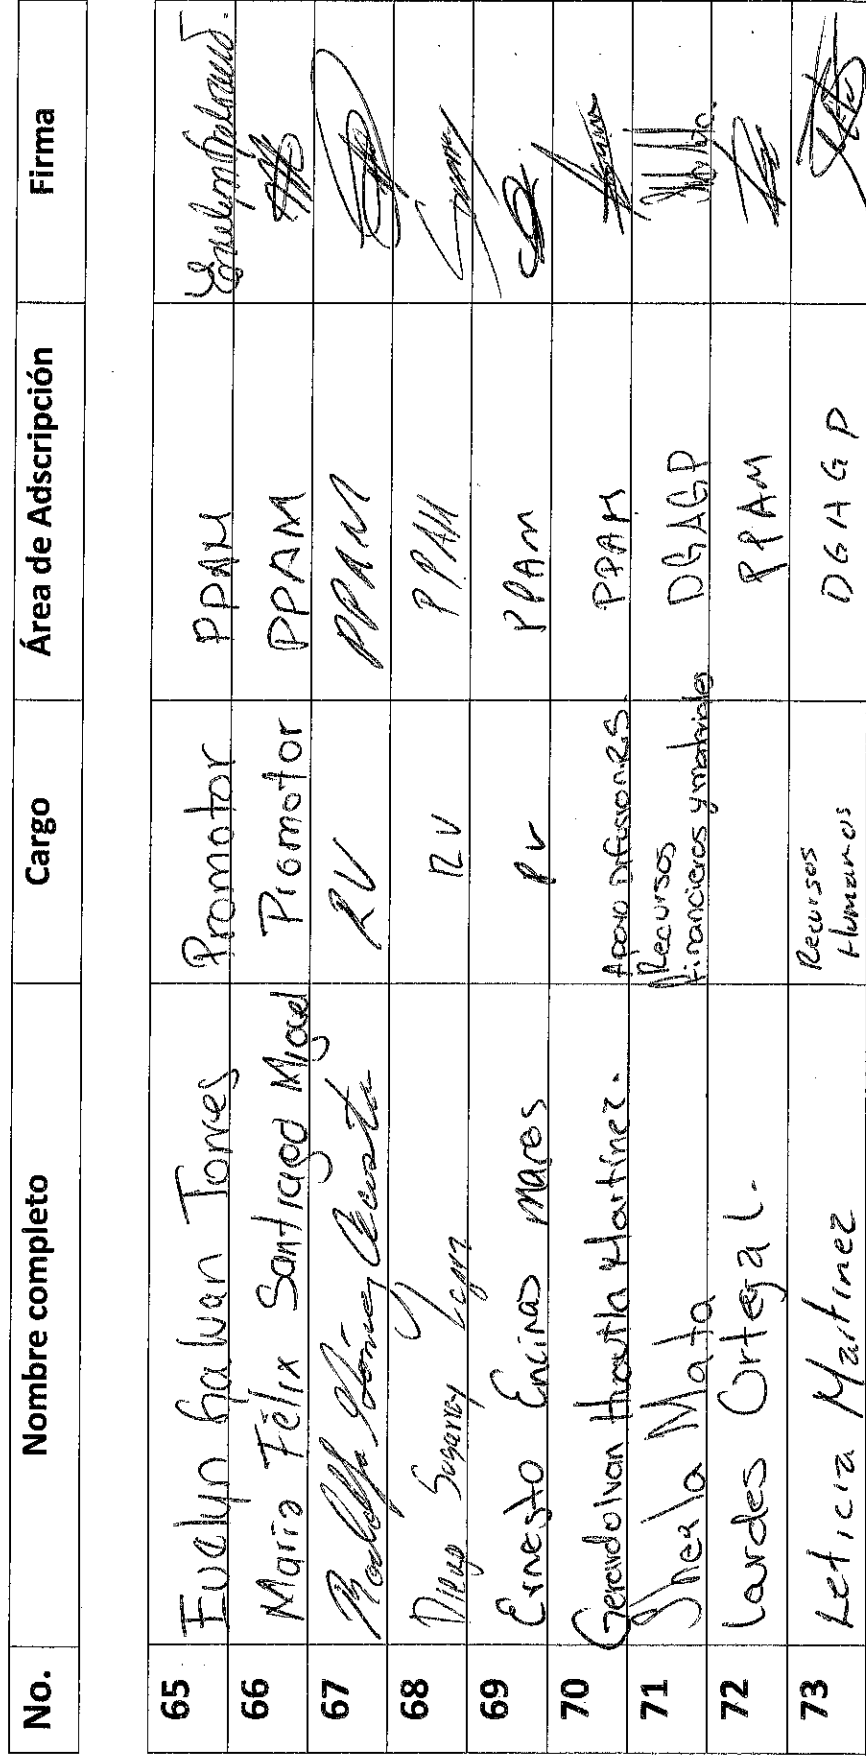 No. Nombre completo Cargo Área de Adscripción Firma
65 Evelyn Galvan Torres Promotor PPAM
66 María Félix Santiago Promotor PPAM
67 Rodolfo Gómez Acosta RV PPAM
68 Diego RV PPAM
69 Ernesto Encinas Mares RV PPAM
70 Gerardo Ivan Huautla Martínez. Apoyo Difusiones. PPAM
71 Sheala Mata Recursos
financieros y materiales DGAGP
72 Lourdes Ortega L. PPAM
73 Leticia Martinez Recursos
Humanos DGAGP